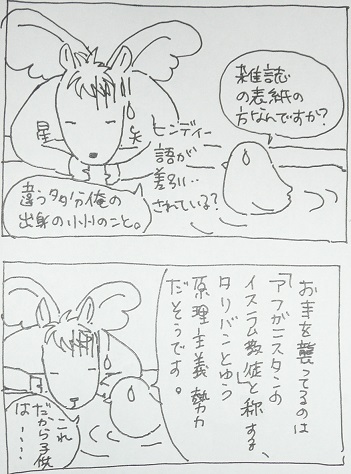 雑誌
の表紙の
方なんですか?
星 矢
ヒンディー
語が
差別‥
されている?
違う多分俺の
出身の州のこと。
を襲ってるのは
「アフガニスタンの
イスラム教徒」と称する、
タリバンとゆう
原理主義勢力
だそうです。
これ
だから子供
は‥‥